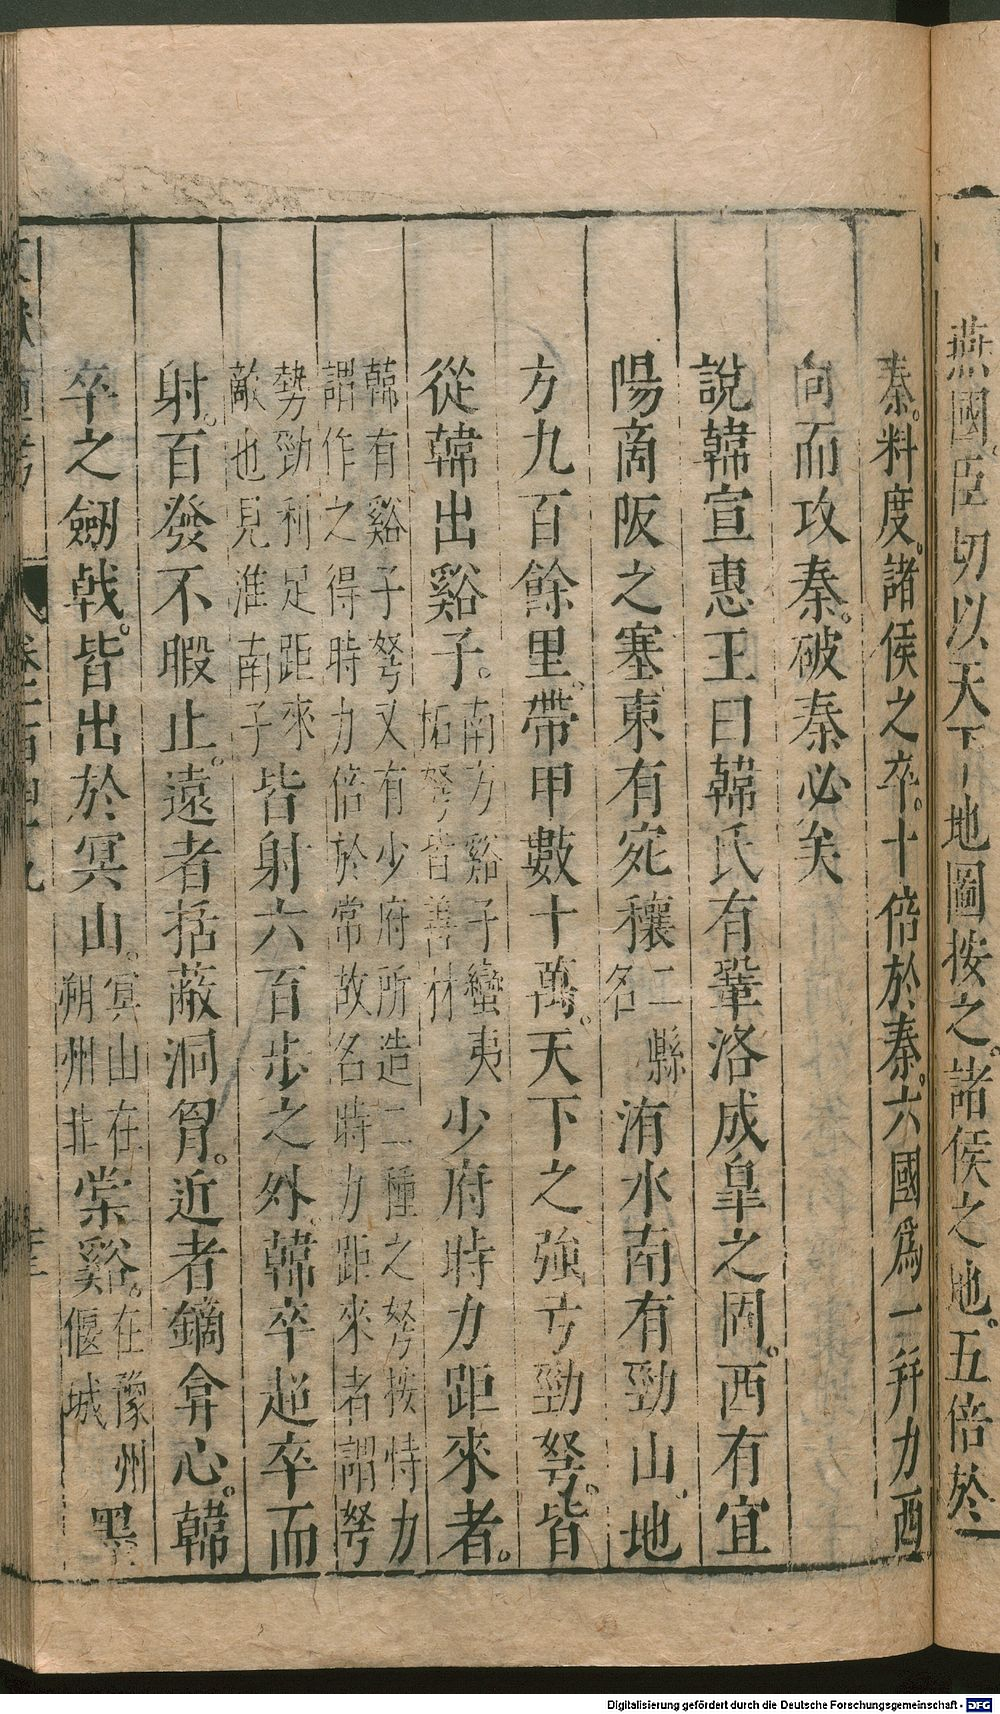 燕國。臣切以天下地圖按之。諸侯之地。五倍於
秦。料度。諸侯之卒。十倍於秦。六國爲一。并力西
向而攻秦。破秦必矣
說韓宣惠王曰韓氏有鞏洛成皐之固。西有宜
陽商阪之塞東有宛穰二縣名洧水南有勁山。地
方九百餘里。帶甲數十萬。天下之強弓勁弩。皆
從韓出谿子。南方谿子蠻夷柘弩皆善材少府時力距來者。
韓有谿子弩又有少府所造二種之弩按恃力
謂作之得時力倍於常故名時力距來者謂弩
勢勁利足距來敵也見淮南子皆射六百步之外韓卒超卒而
射。百發不暇止。遠者括蔽洞胷。近者鏑弇心。韓
卒之劒戟。皆出於冥山。冥山在朔州北棠谿。在豫州偃城墨
Digitalisierung gefördert durch die Deutsche Forschungsgemeinschaft - DFG